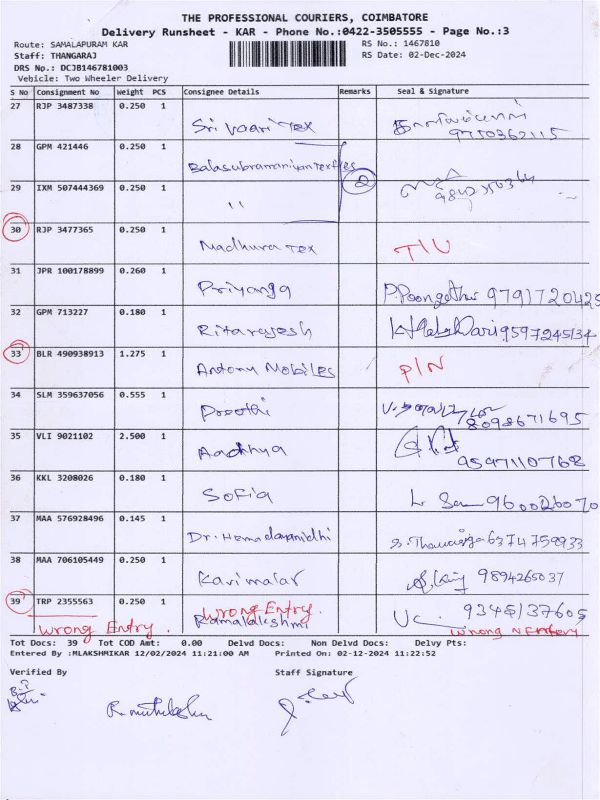 THE PROFESSIONAL COURIERS, COIMBATORE
Delivery Runsheet - KAR - Phone No.:0422-3505555 - Page No.:3
Route: SAMALAPURAM KAR RS No.: 1467810
Staff: THANGARAJ RS Date: 02-Dec-2024
DRS No.: DCJB146781003
Vehicle: Two Wheeler Delivery
S No Consignment No Weight PCS Consignee Details Remarks Seal & Signature
27 RJP 3487338 0.250 1 Sri Vaari Tex 9750362115
28 GPM 421446 0.250 1 Balasubramaniyan Textiles
29 IXM 507444369 0.250 1 " 2
30 RJP 3477365 0.250 1 Madhura Tex
31 JPR 100178899 0.260 1 Priyanga P. Poongothai 9791720425
32 GPM 713227 0.180 1 Ritarajesh 9597245134
33 BLR 490938913 1.275 1 Antony Mobiles P/N
34 SLM 359637056 0.555 1 Preethi 8098671695
35 VLI 9021102 2.500 1 Aadhya 9597110768
36 KKL 3208026 0.180 1 Sofia 9600026070
37 MAA 576928496 0.145 1 Dr. Hemadayanidhi 6374759933
38 MAA 706105449 0.250 1 Kavimalar 9894265037
39 TRP 2355563 0.250 1 Ramalakshmi 9345137605
Wrong Entry.
Wrong Entry.
Wrong
Tot Docs: 39 Tot COD Amt: 0.00 Delvd Docs: Non Delvd Docs: Delvy Pts:
Entered By :MLAKSHMIKAR 12/02/2024 11:21:00 AM Printed On: 02-12-2024 11:22:52
Verified By Staff Signature